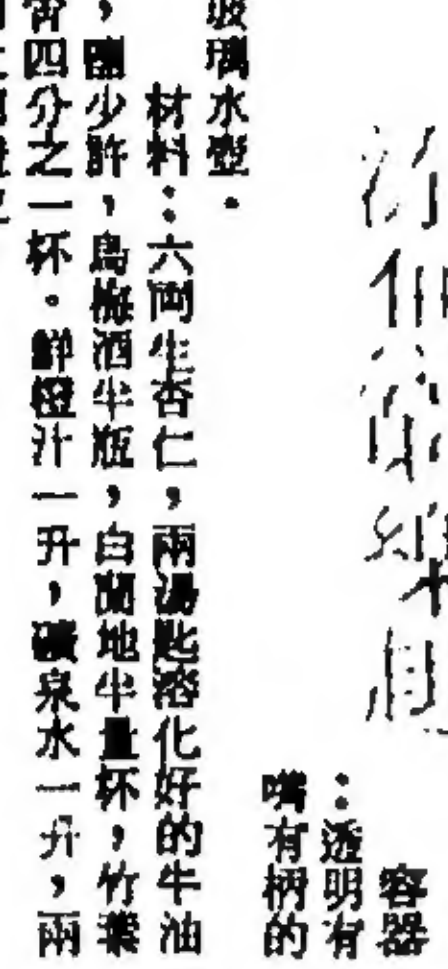 容器
：透明有
嘴有柄的
玻璃水壺．
材料：六兩生杏仁，兩湯匙溶化好的牛油
，鹽少許，烏梅酒半瓶，白蘭地半量杯，竹葉
青四分之一杯。鮮橙汁一升，礦泉水一升，兩